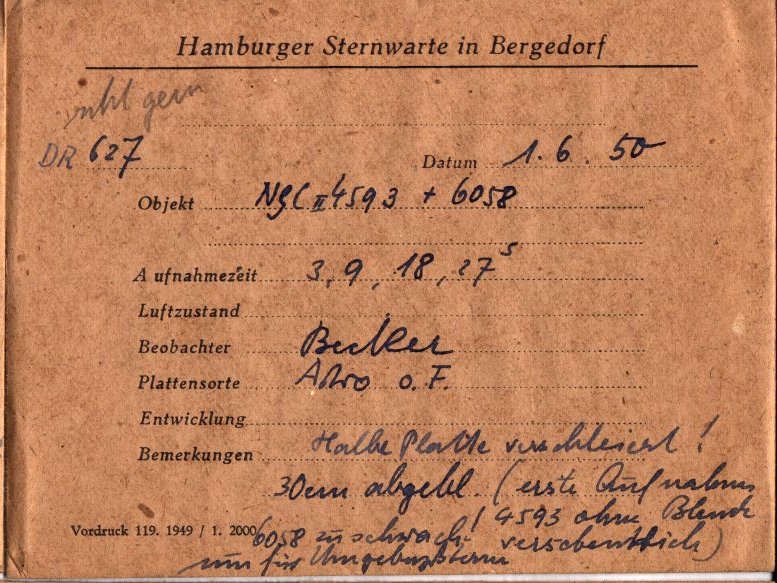 Hamburger Sternwarte in Bergedorf
nicht gern
DR 627 Datum 1. 6. 50
Objekt NGC II 4593 + 6058
Aufnahmezeit 3, 9, 18, 27 s
Luftzustand
Beobachter Becker
Plattensorte Astro o. F.
Entwicklung
Bemerkungen Halbe Platte verschleiert!
30cm abgebl. (erste Aufnahme
4593 ohne Blende
Vordruck 119. 1949 / 1. 2000 6058 zu schwach! versehentlich)
nur für Umgebungsstern